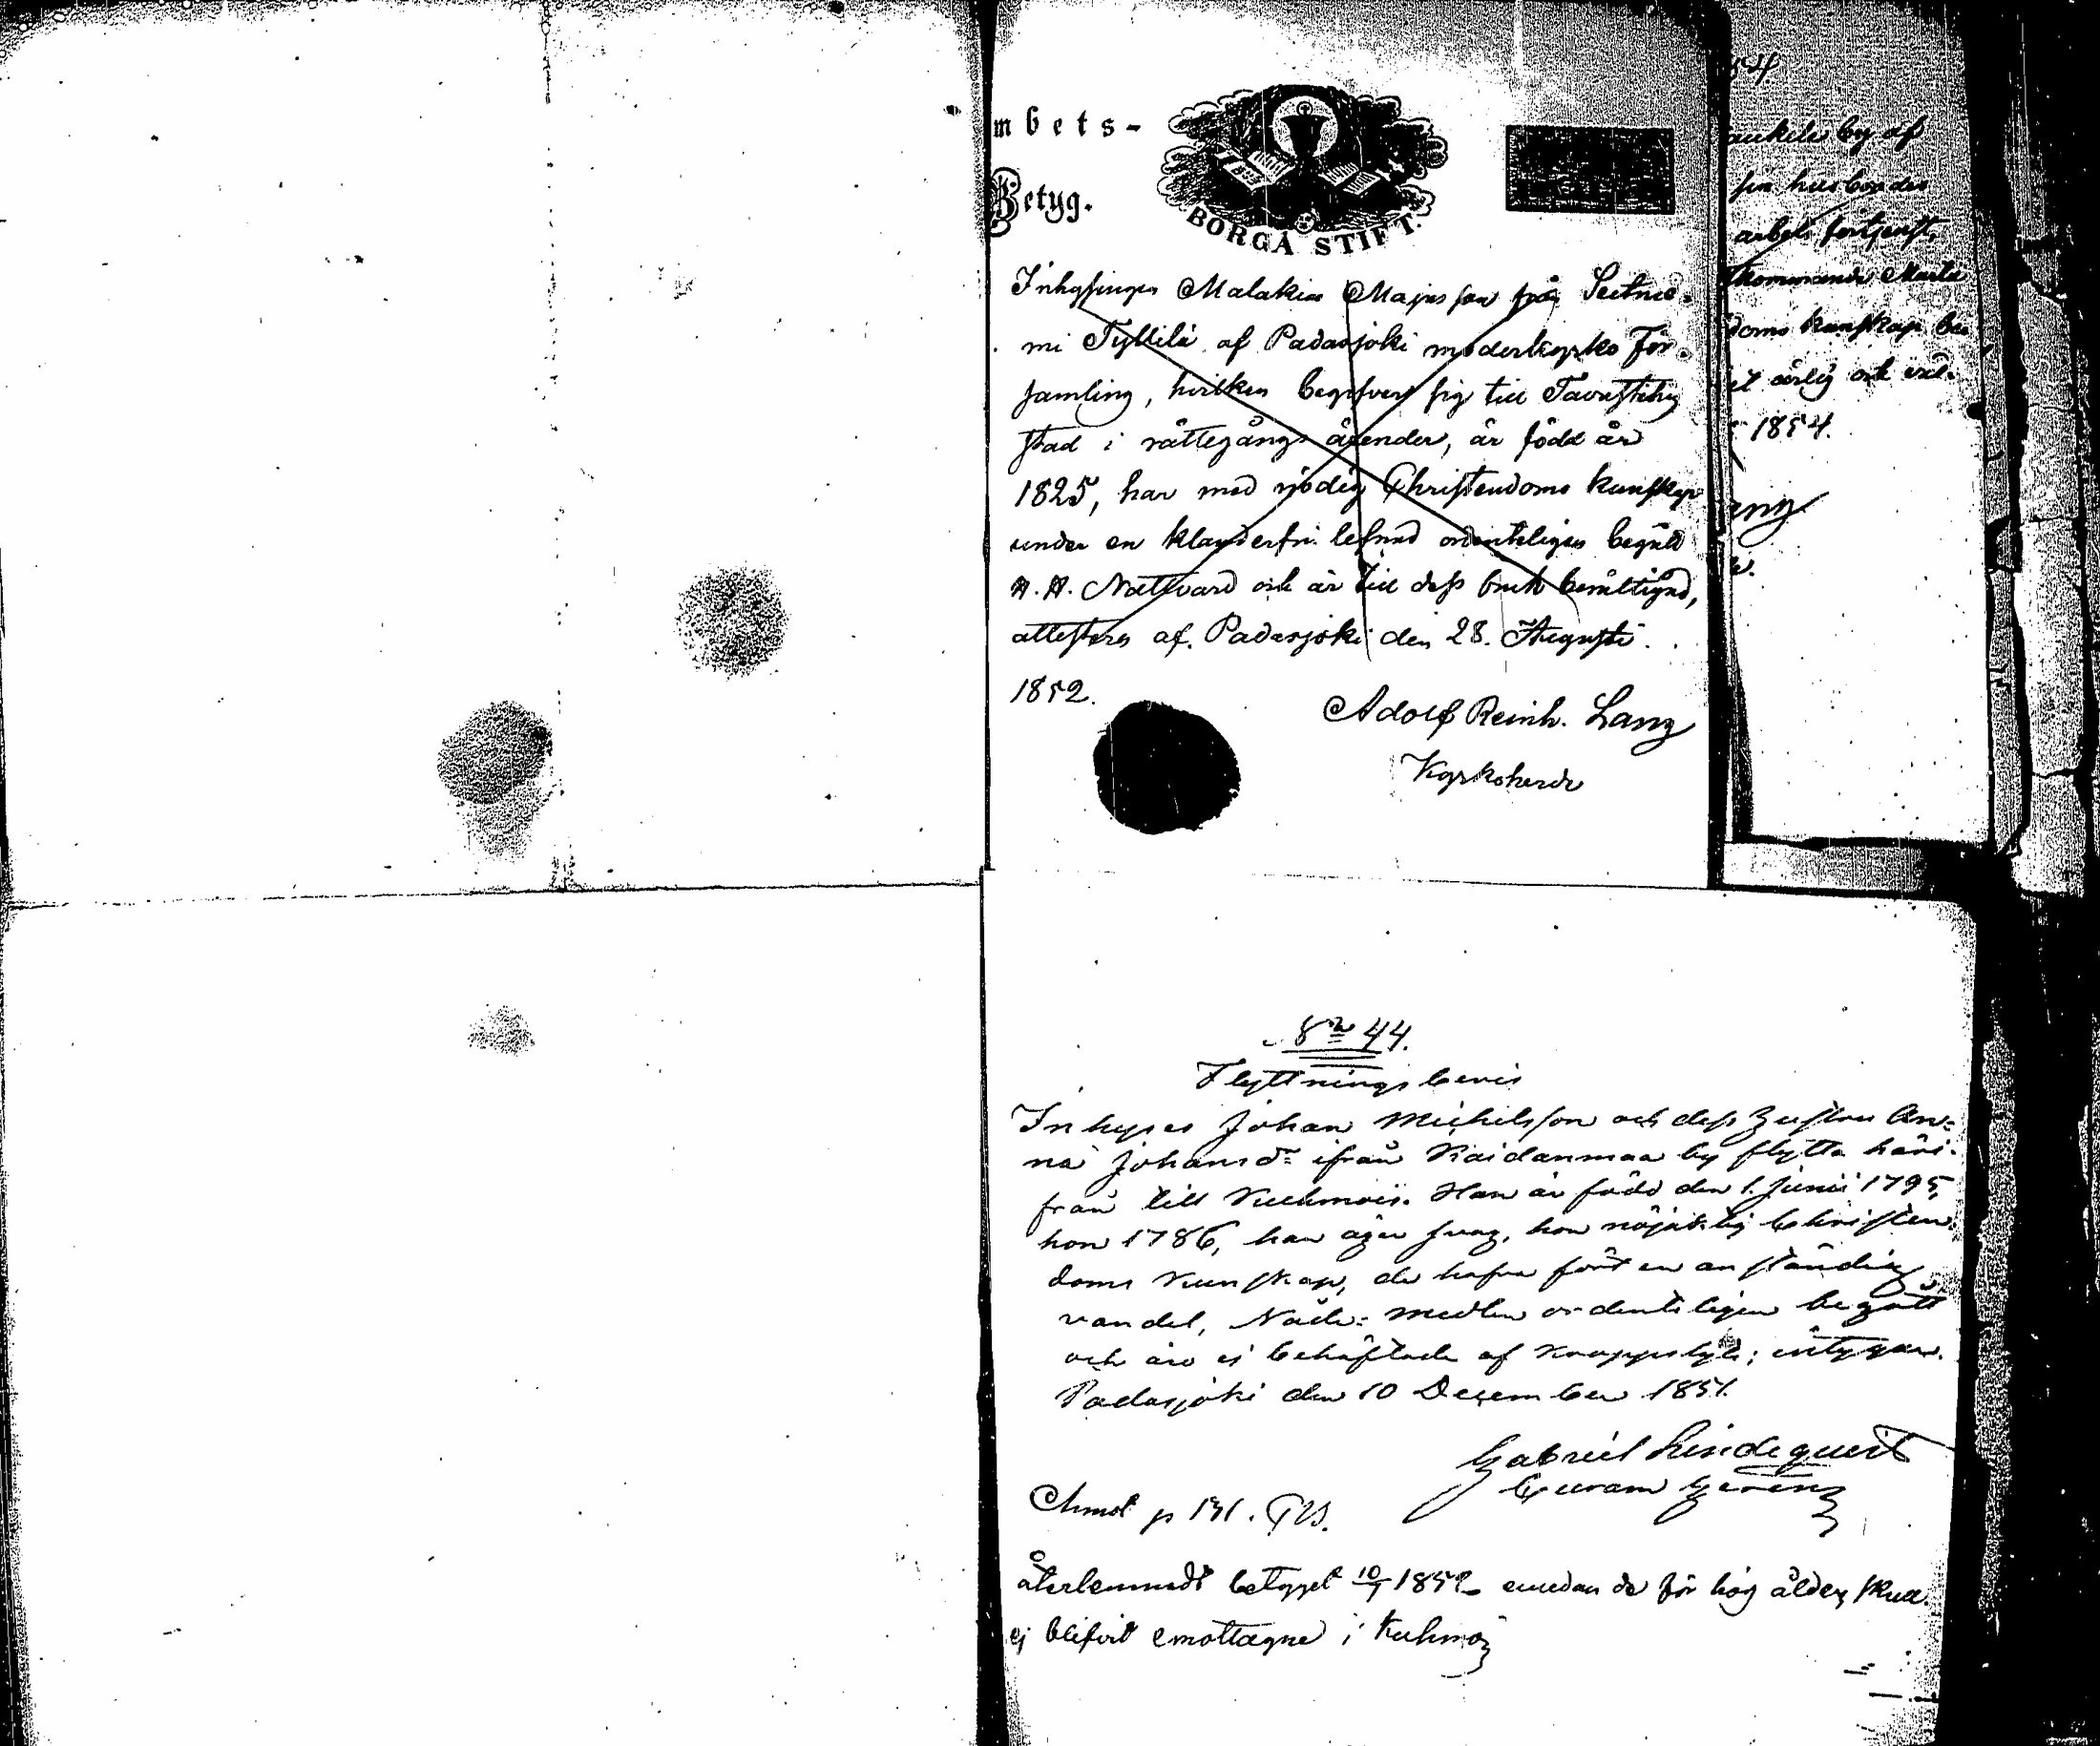 mbets-
Betyg.
BORGÅ STIFT.
Inhysingen Malakias Majasson från Seitnie-
mi Tyllilä af Padasjoki moderkyrko För-
samling, hvilken begifver sig till Tavastehus
stad i rättegångs ärender, är född år
1825, har med nödig Christendoms kunskap
under en klanderfri lefnad ordenteligen begått
H. H. Nattvard och är till dess bruk berättigad,
attesteras af. Padasjoki den 28. Augusti
1852.
Adolf Reinh. Lang
Kyrkoherde
54.
by af
sin husbondes
arbets förtjenst,
tkommande
doms kunskap
ärlig och
1854.
ang
No 44.
Flyttningsbevis
Inhyses Johan Michelsson och dess hustru An-
na Johansdr ifrån Kaidanmaa by flytta häri-
från till Kuhmois. Han är född den 1. Junii 1795,
hon 1786, han äger svag, hon nöjaktig Christen-
doms kunskap, de hafva fört en anständig
vandel, Nåde-medlen ordenteligen begått
och äro ej behäftade af kroppslyte; intygar.
Padasjoki den 10 December 1851.
Gabriel Lindequist
p 131.
återlemnadt betyget 10/1 1852 emedan de för hög ålders skull
ej blifvit emottagne i Kuhmois